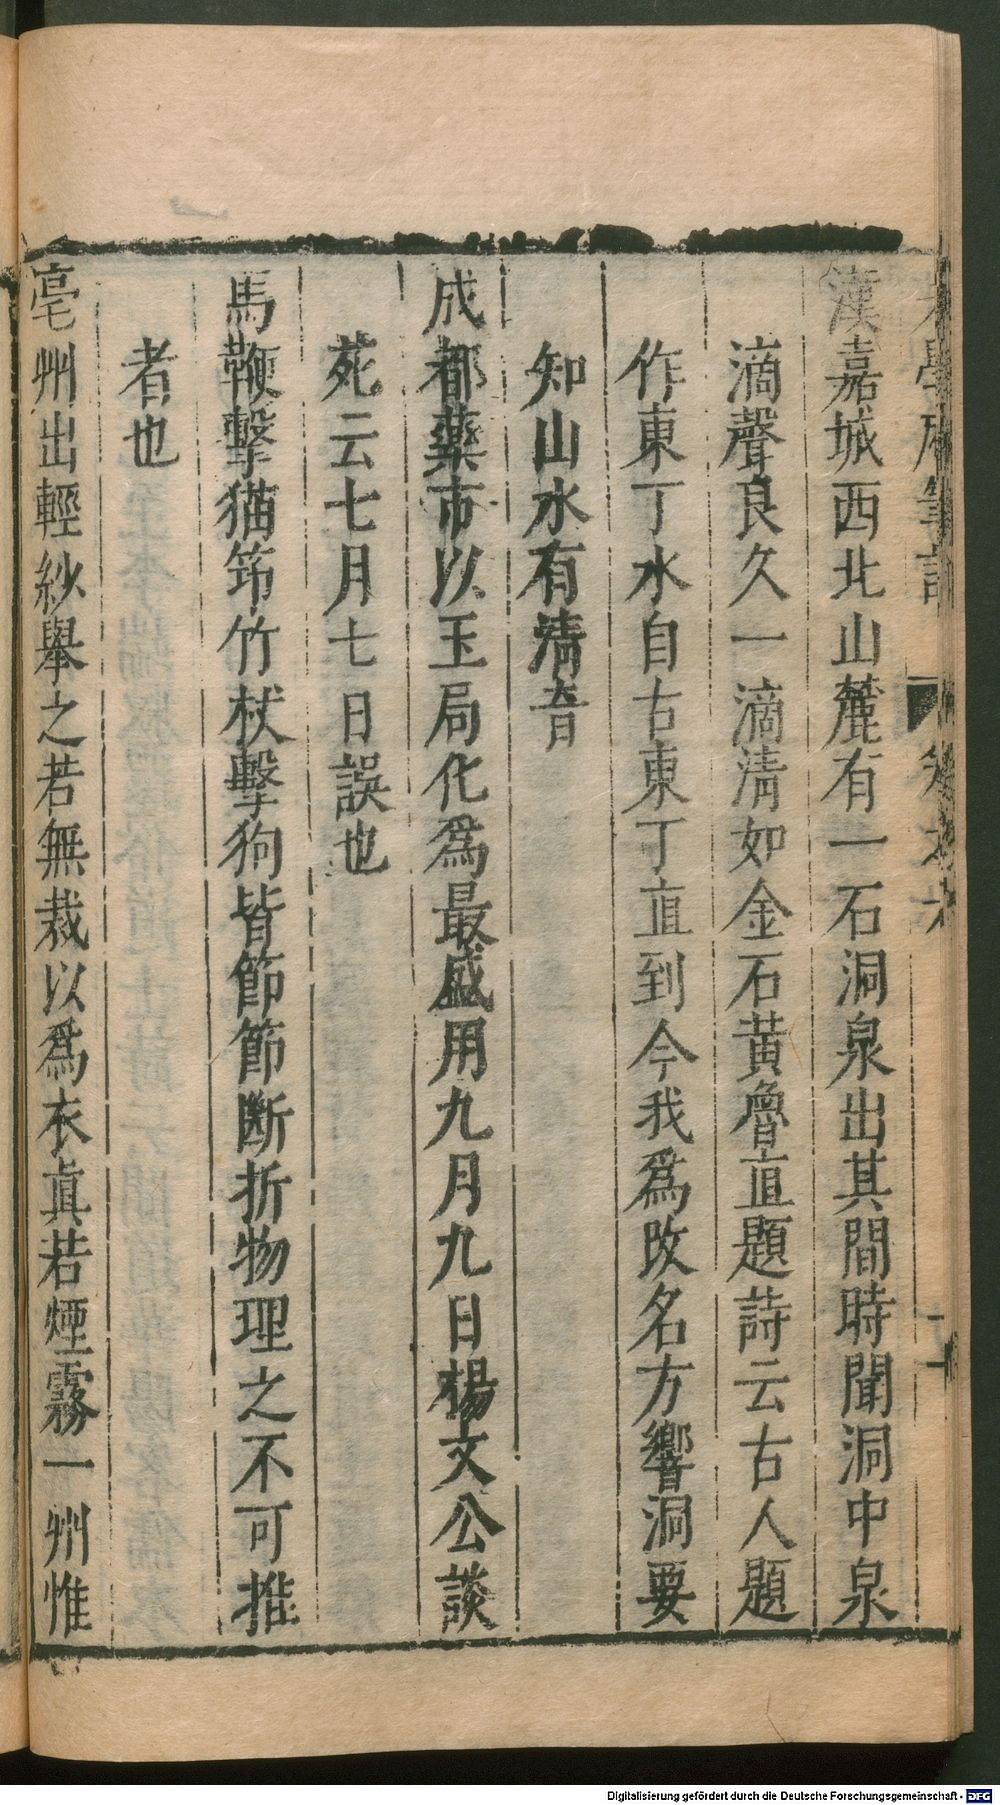 漢嘉城西北山麓有一石洞泉出其間時聞洞中泉
滴聲良久一滴清如金石黃魯直題詩云古人題
作東丁水自古東丁直到今我爲改名方響洞要
知山水有清音
成都藥市以玉局化爲最盛用九月九日楊文公談
苑云七月七日誤也
馬鞭擊猫筇竹杖擊狗皆節節斷折物理之不可推
者也
亳州出輕紗舉之若無裁以爲衣眞若煙霧一州惟
Digitalisierung gefördert durch die Deutsche Forschungsgemeinschaft - DFG